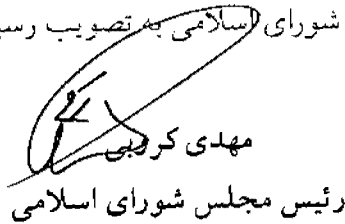 شورای اسلامی به تصویب رسی
مهدی کروبی
رئیس مجلس شورای اسلامی